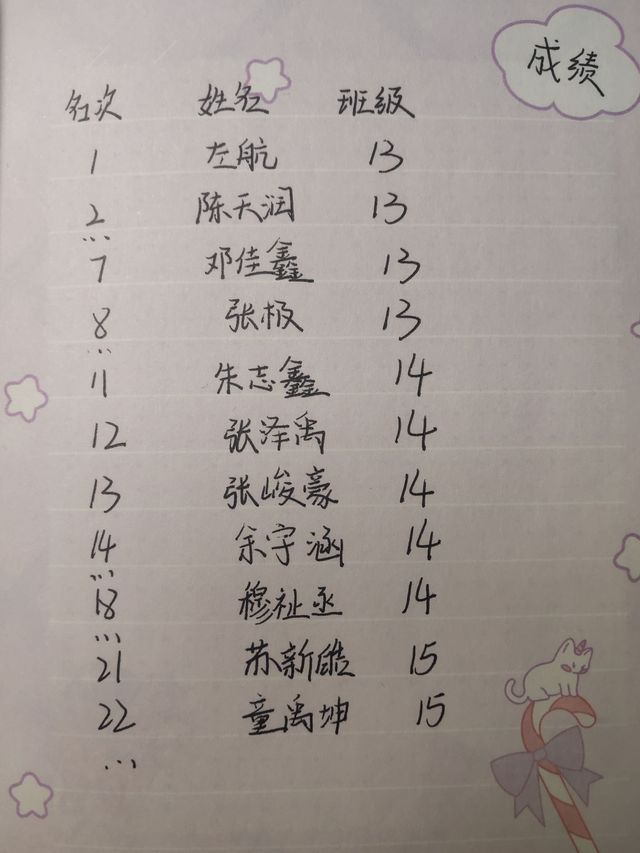 成绩
名次 姓名 班级
1 左航 13
2 陈天润 13
...
7 邓佳鑫 13
8 张极 13
...
11 朱志鑫 14
12 张泽禹 14
13 张峻豪 14
14 余宇涵 14
...
18 穆祉丞 14
...
21 苏新皓 15
22 童禹坤 15
...